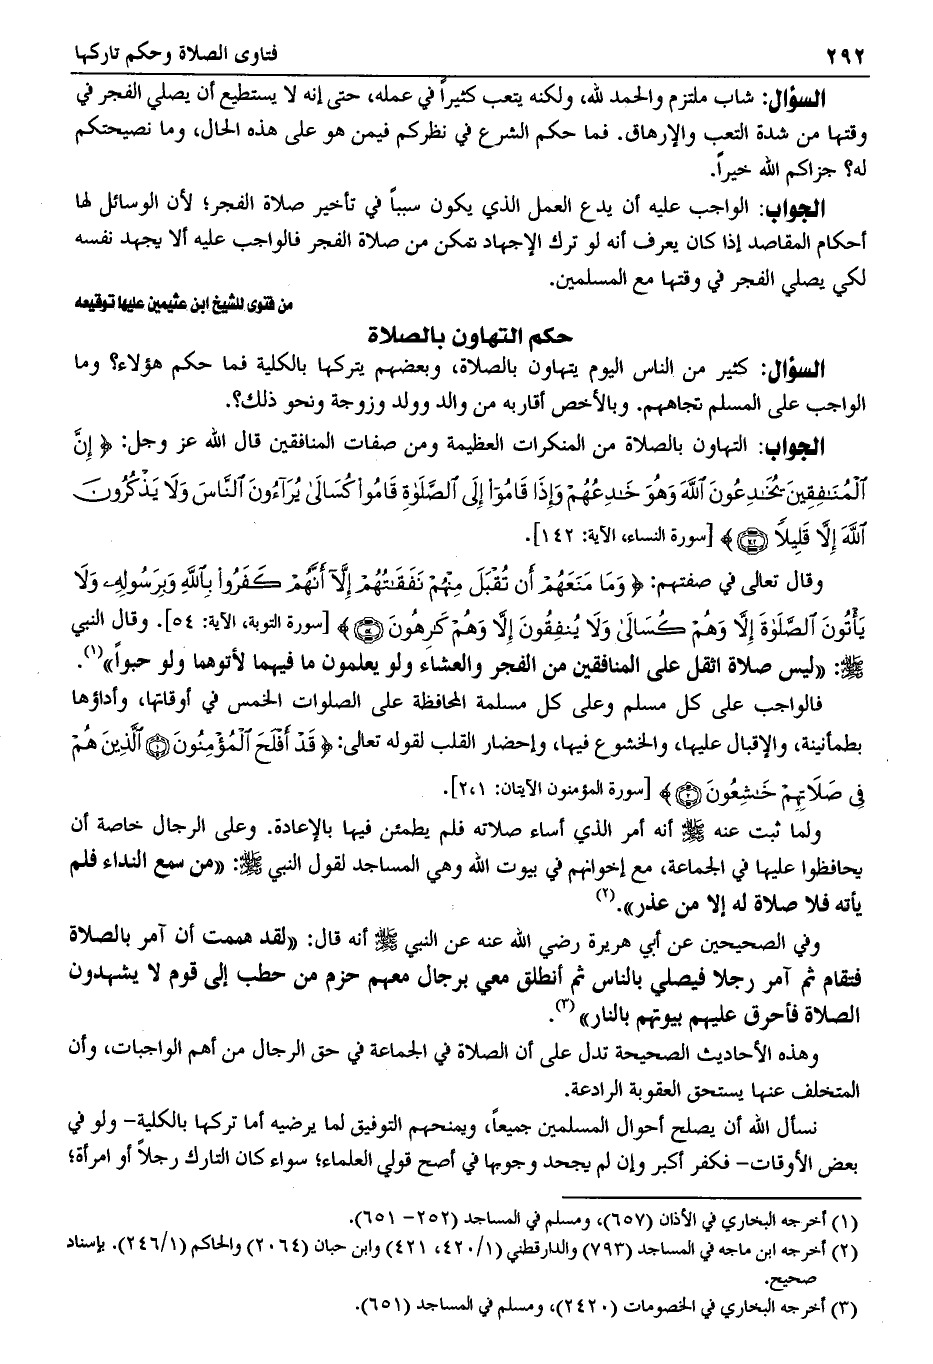 ٢٩٢ فتاوى الصلاة وحكم تاركها
السؤال: شاب ملتزم والحمد لله، ولكنه يتعب كثيراً في عمله، حتى إنه لا يستطيع أن يصلي الفجر في
وقتها من شدة التعب والإرهاق. فما حكم الشرع في نظركم فيمن هو على هذه الحال، وما نصيحتكم
له؟ جزاكم الله خيراً.
الجواب: الواجب عليه أن يدع العمل الذي يكون سبباً في تأخير صلاة الفجر؛ لأن الوسائل لها
أحكام المقاصد إذا كان يعرف أنه لو ترك الإجهاد تمكن من صلاة الفجر فالواجب عليه ألا يجهد نفسه
لكي يصلي الفجر في وقتها مع المسلمين.
من فتوى للشيخ ابن عثيمين عليها توقيعه
حكم التهاون بالصلاة
السؤال: كثير من الناس اليوم يتهاون بالصلاة، وبعضهم يتركها بالكلية فما حكم هؤلاء؟ وما
الواجب على المسلم تجاههم. وبالأخص أقاربه من والد وولد وزوجة ونحو ذلك؟.
الجواب: التهاون بالصلاة من المنكرات العظيمة ومن صفات المنافقين قال الله عز وجل: ﴿ إِنَّ
ٱلْمُنَـٰفِقِينَ يُخَـٰدِعُونَ ٱللَّهَ وَهُوَ خَـٰدِعُهُمْ وَإِذَا قَامُوٓا۟ إِلَى ٱلصَّلَوٰةِ قَامُوا۟ كُسَالَىٰ يُرَآءُونَ ٱلنَّاسَ وَلَا يَذْكُرُونَ
ٱللَّهَ إِلَّا قَلِيلًا ﴿١٤٢﴾ ﴾ [سورة النساء، الآية: ١٤٢].
وقال تعالى في صفتهم: ﴿ وَمَا مَنَعَهُمْ أَن تُقْبَلَ مِنْهُمْ نَفَقَـٰتُهُمْ إِلَّآ أَنَّهُمْ كَفَرُوا۟ بِٱللَّهِ وَبِرَسُولِهِۦ وَلَا
يَأْتُونَ ٱلصَّلَوٰةَ إِلَّا وَهُمْ كُسَالَىٰ وَلَا يُنفِقُونَ إِلَّا وَهُمْ كَـٰرِهُونَ ﴿٥٤﴾ ﴾ [سورة التوبة، الآية: ٥٤]. وقال النبي
ﷺ: «ليس صلاة اثقل على المنافقين من الفجر والعشاء ولو يعلمون ما فيهما لأتوهما ولو حبواً»(١).
فالواجب على كل مسلم وعلى كل مسلمة المحافظة على الصلوات الخمس في أوقاتها، وأداؤها
بطمأنينة، والإقبال عليها، والخشوع فيها، وإحضار القلب لقوله تعالى: ﴿ قَدْ أَفْلَحَ ٱلْمُؤْمِنُونَ ﴿١﴾ ٱلَّذِينَ هُمْ
فِى صَلَاتِهِمْ خَـٰشِعُونَ ﴿٢﴾ ﴾ [سورة المؤمنون الآيتان: ٢،١].
ولما ثبت عنه ﷺ أنه أمر الذي أساء صلاته فلم يطمئن فيها بالإعادة. وعلى الرجال خاصة أن
يحافظوا عليها في الجماعة، مع إخوانهم في بيوت الله وهي المساجد لقول النبي ﷺ: «من سمع النداء فلم
يأته فلا صلاة له إلا من عذر».(٢)
وفي الصحيحين عن أبي هريرة رضي الله عنه عن النبي ﷺ أنه قال: «لقد هممت أن آمر بالصلاة
فتقام ثم آمر رجلا فيصلي بالناس ثم أنطلق معي برجال معهم حزم من حطب إلى قوم لا يشهدون
الصلاة فأحرق عليهم بيوتهم بالنار»(٣).
وهذه الأحاديث الصحيحة تدل على أن الصلاة في الجماعة في حق الرجال من أهم الواجبات، وأن
المتخلف عنها يستحق العقوبة الرادعة.
نسأل الله أن يصلح أحوال المسلمين جميعاً، ويمنحهم التوفيق لما يرضيه أما تركها بالكلية- ولو في
بعض الأوقات- فكفر أكبر وإن لم يجحد وجوبها في أصح قولي العلماء؛ سواء كان التارك رجلاً أو امرأة؛
(١) أخرجه البخاري في الأذان (٦٥٧)، ومسلم في المساجد (٢٥٢- ٦٥١).
(٢) أخرجه ابن ماجه في المساجد (٧٩٣) والدارقطني (٤٢٠/١، ٤٢١) وابن حبان (٢٠٦٤) والحاكم (٢٤٦/١). بإسناد
صحيح.
(٣) أخرجه البخاري في الخصومات (٢٤٢٠)، ومسلم في المساجد (٦٥١).